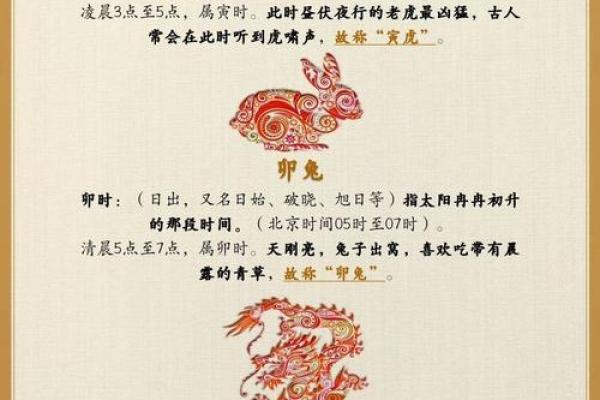 凌晨3点至5点，属寅时。此时昼伏夜行的老虎最凶猛，古人
常会在此时听到虎啸声，故称“寅虎”。
卯兔
卯时：（日出，又名日始、破晓、旭日等）指太阳冉冉初升
的那段时间。（北京时间05时至07时）。
清晨5点至7点，属卯时。天刚亮，兔子出窝，喜欢吃带有晨
露的青草，故称“卯兔”。